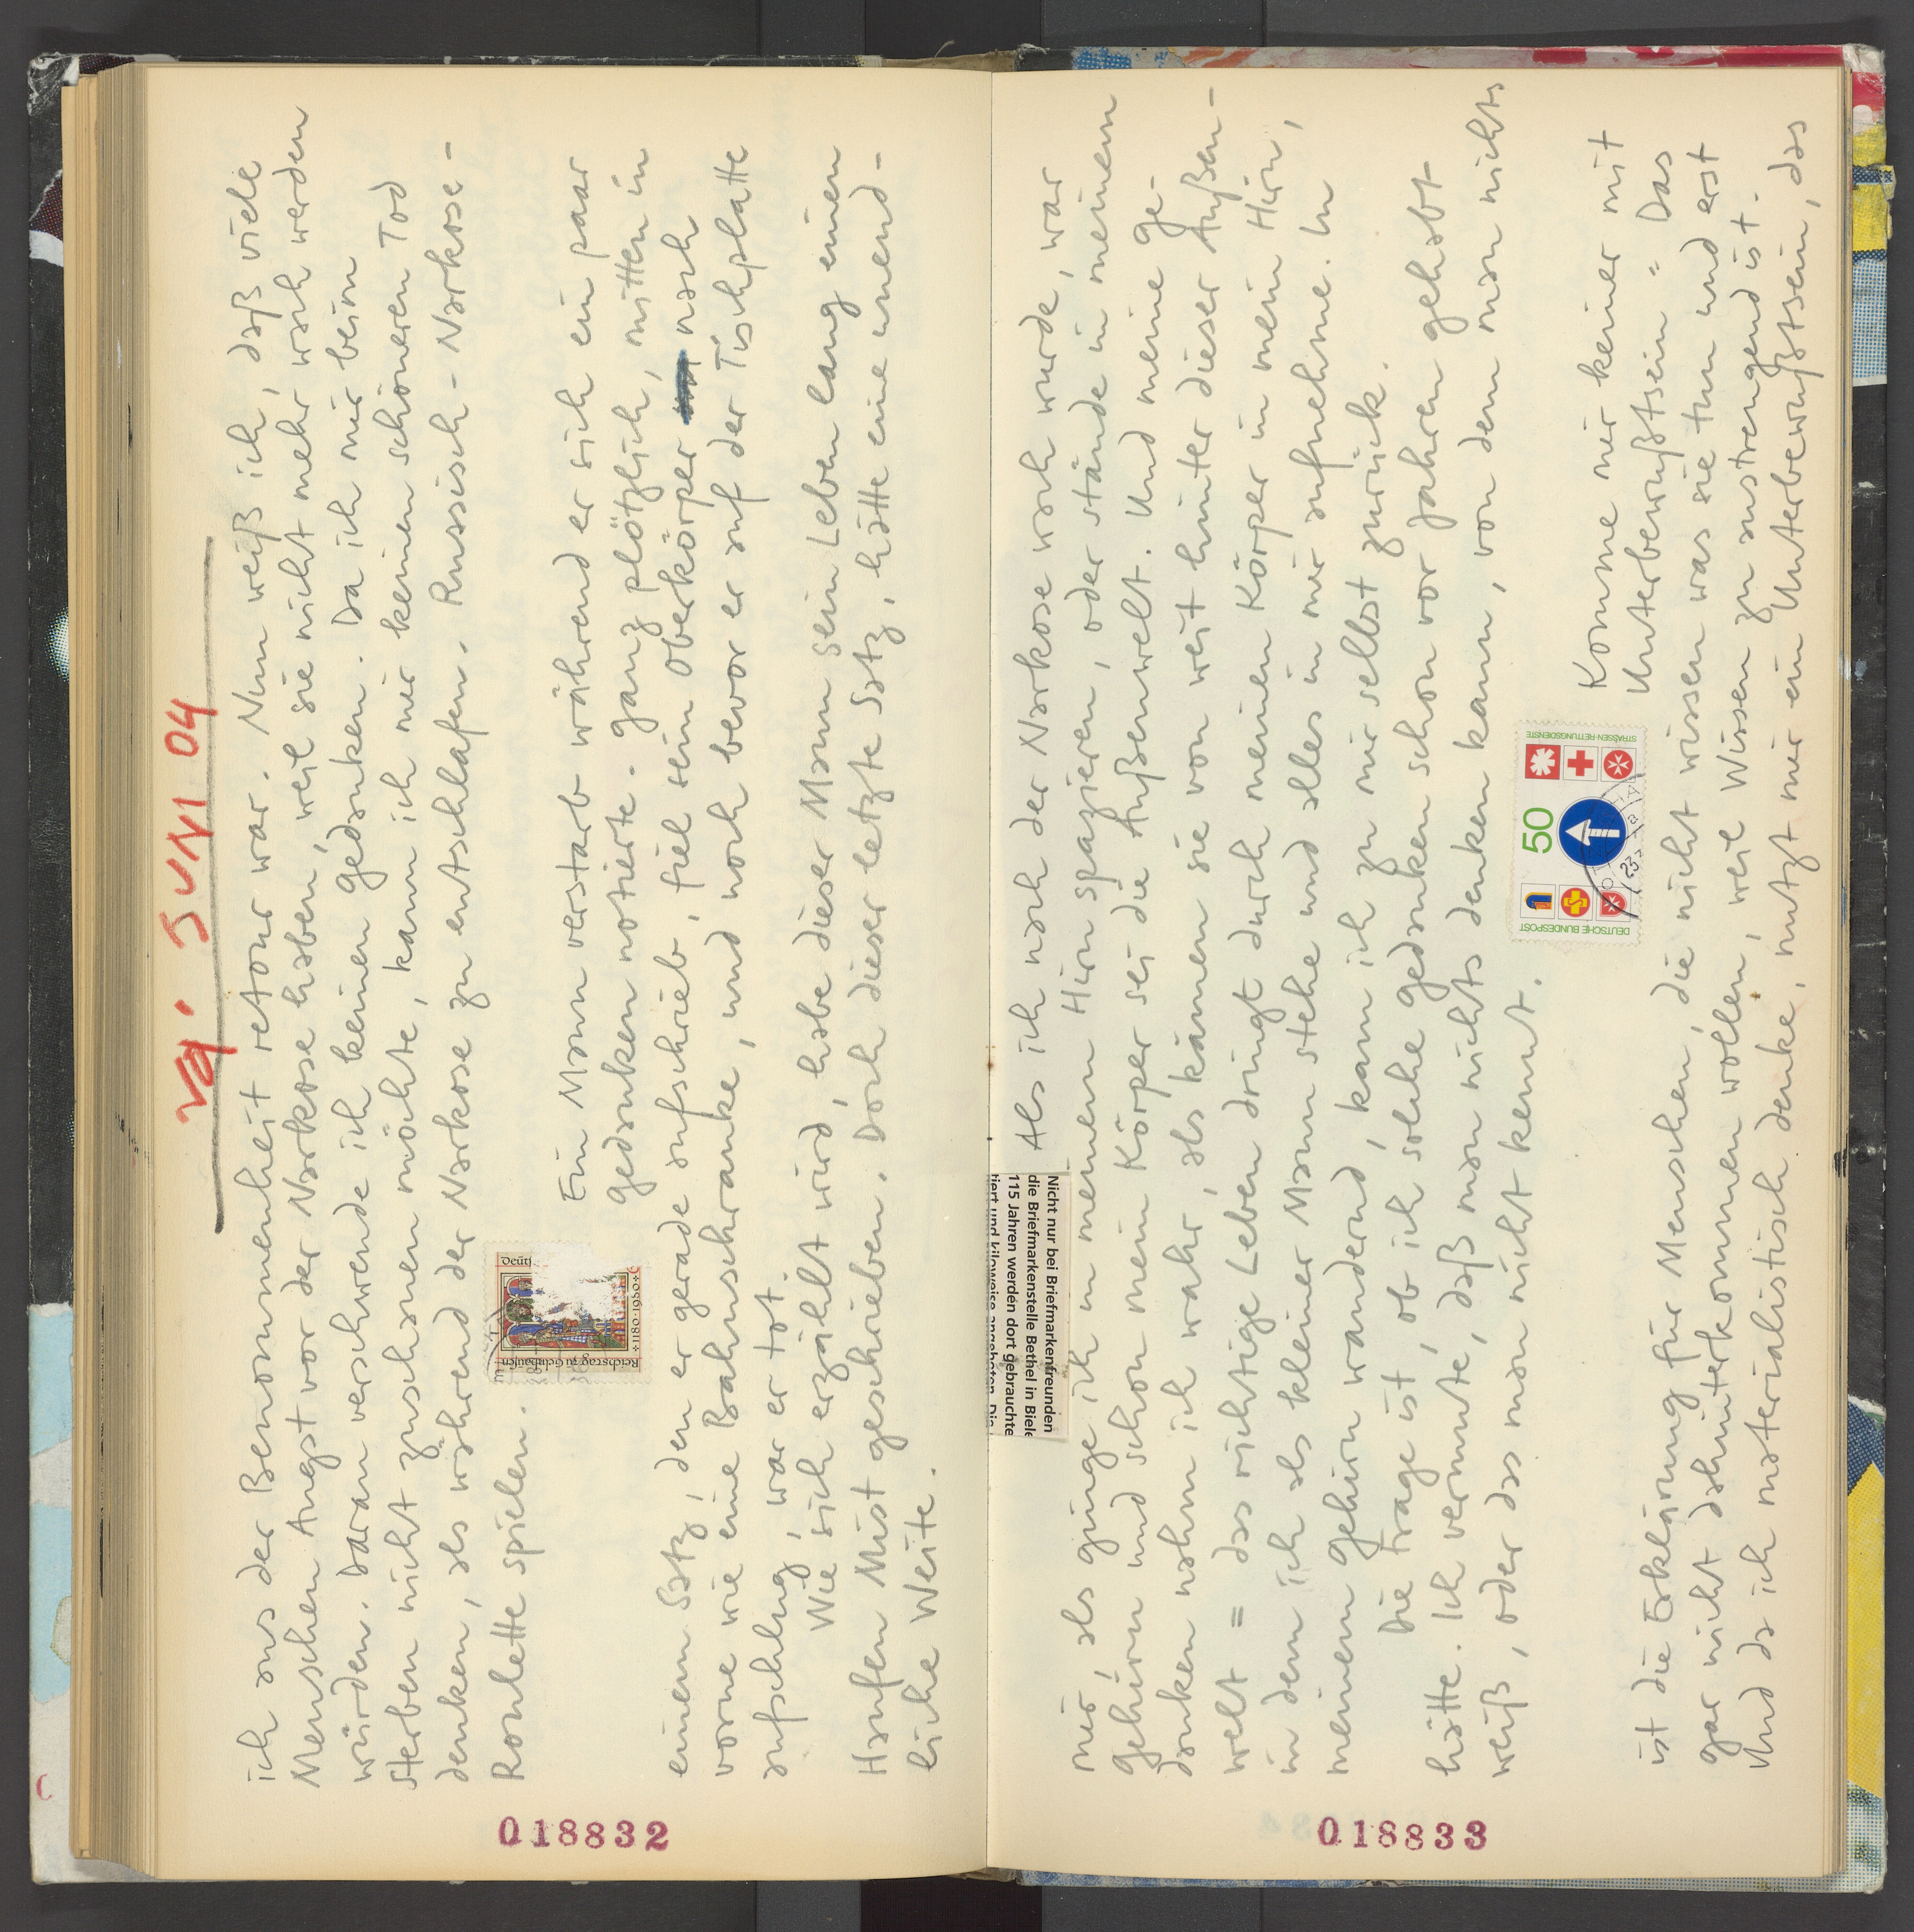 va. JUNI 04
ich aus der Benommenheit retour war. Nun weiß ich, daß viele
Menschen Angst vor der Narkose haben, weil sie nicht mehr wach werden
würden. Daran verschwende ich keinen Gedanken. Da ich mir beim
Sterben nicht zuschauen möchte, kann ich mir keinen schöneren Tod
denken, als während der Narkose zu entschlafen. Russisch-Narkose-
Roulette spielen.
Deuts
Reichstag zu Gelnhausen
1180·1980
Ein Mann verstarb während er sich ein paar
Gedanken notierte. Ganz plötzlich, mitten in
einem Satz, den er gerade aufschrieb, fiel sein Oberkörper nach
vorne wie eine Bahnschranke, und noch bevor er auf der Tischplatte
aufschlug, war er tot.
Wie sich erzählt wird, habe dieser Mann sein Leben lang einen
Haufen Mist geschrieben. Doch dieser letzte Satz, hätte eine unend-
liche Weite.
018832
Nicht nur bei Briefmarkenfreunden
die Briefmarkenstelle Bethel in Biele
115 Jahren werden dort gebrauchte
tiert und kiloweise angeboten. Die
Als ich nach der Narkose wach wurde, war
mir, als ginge ich in meinem Hirn spazieren, oder stände in meinem
Gehirn und schon mein Körper sei die Außenwelt. Und meine Ge-
danken nahm ich wahr, als kämen sie von weit hinter dieser Außen-
welt = das richtige Leben dringt durch meinen Körper in mein Hirn,
in dem ich als kleiner Mann stehe und alles in mir aufnehme. In
meinem Gehirn wandernd, kann ich zu mir selbst zurück.
Die Frage ist, ob ich solche Gedanken schon vor Jahren gehabt
hätte. Ich vermute, daß man nichts denken kann, von dem man nichts
weiß, oder das man nicht kennt.
DEUTSCHE BUNDESPOST
50
STRASSEN-RETTUNGSDIENSTE
Komme mir keiner mit
Unterbewußtsein = Das
ist die Erklärung für Menschen, die nicht wissen was sie tun und erst
gar nicht dahinterkommen wollen, weil Wissen zu anstrengend ist.
Und da ich materialistisch denke, nutzt mir ein Unterbewußtsein, das
018833